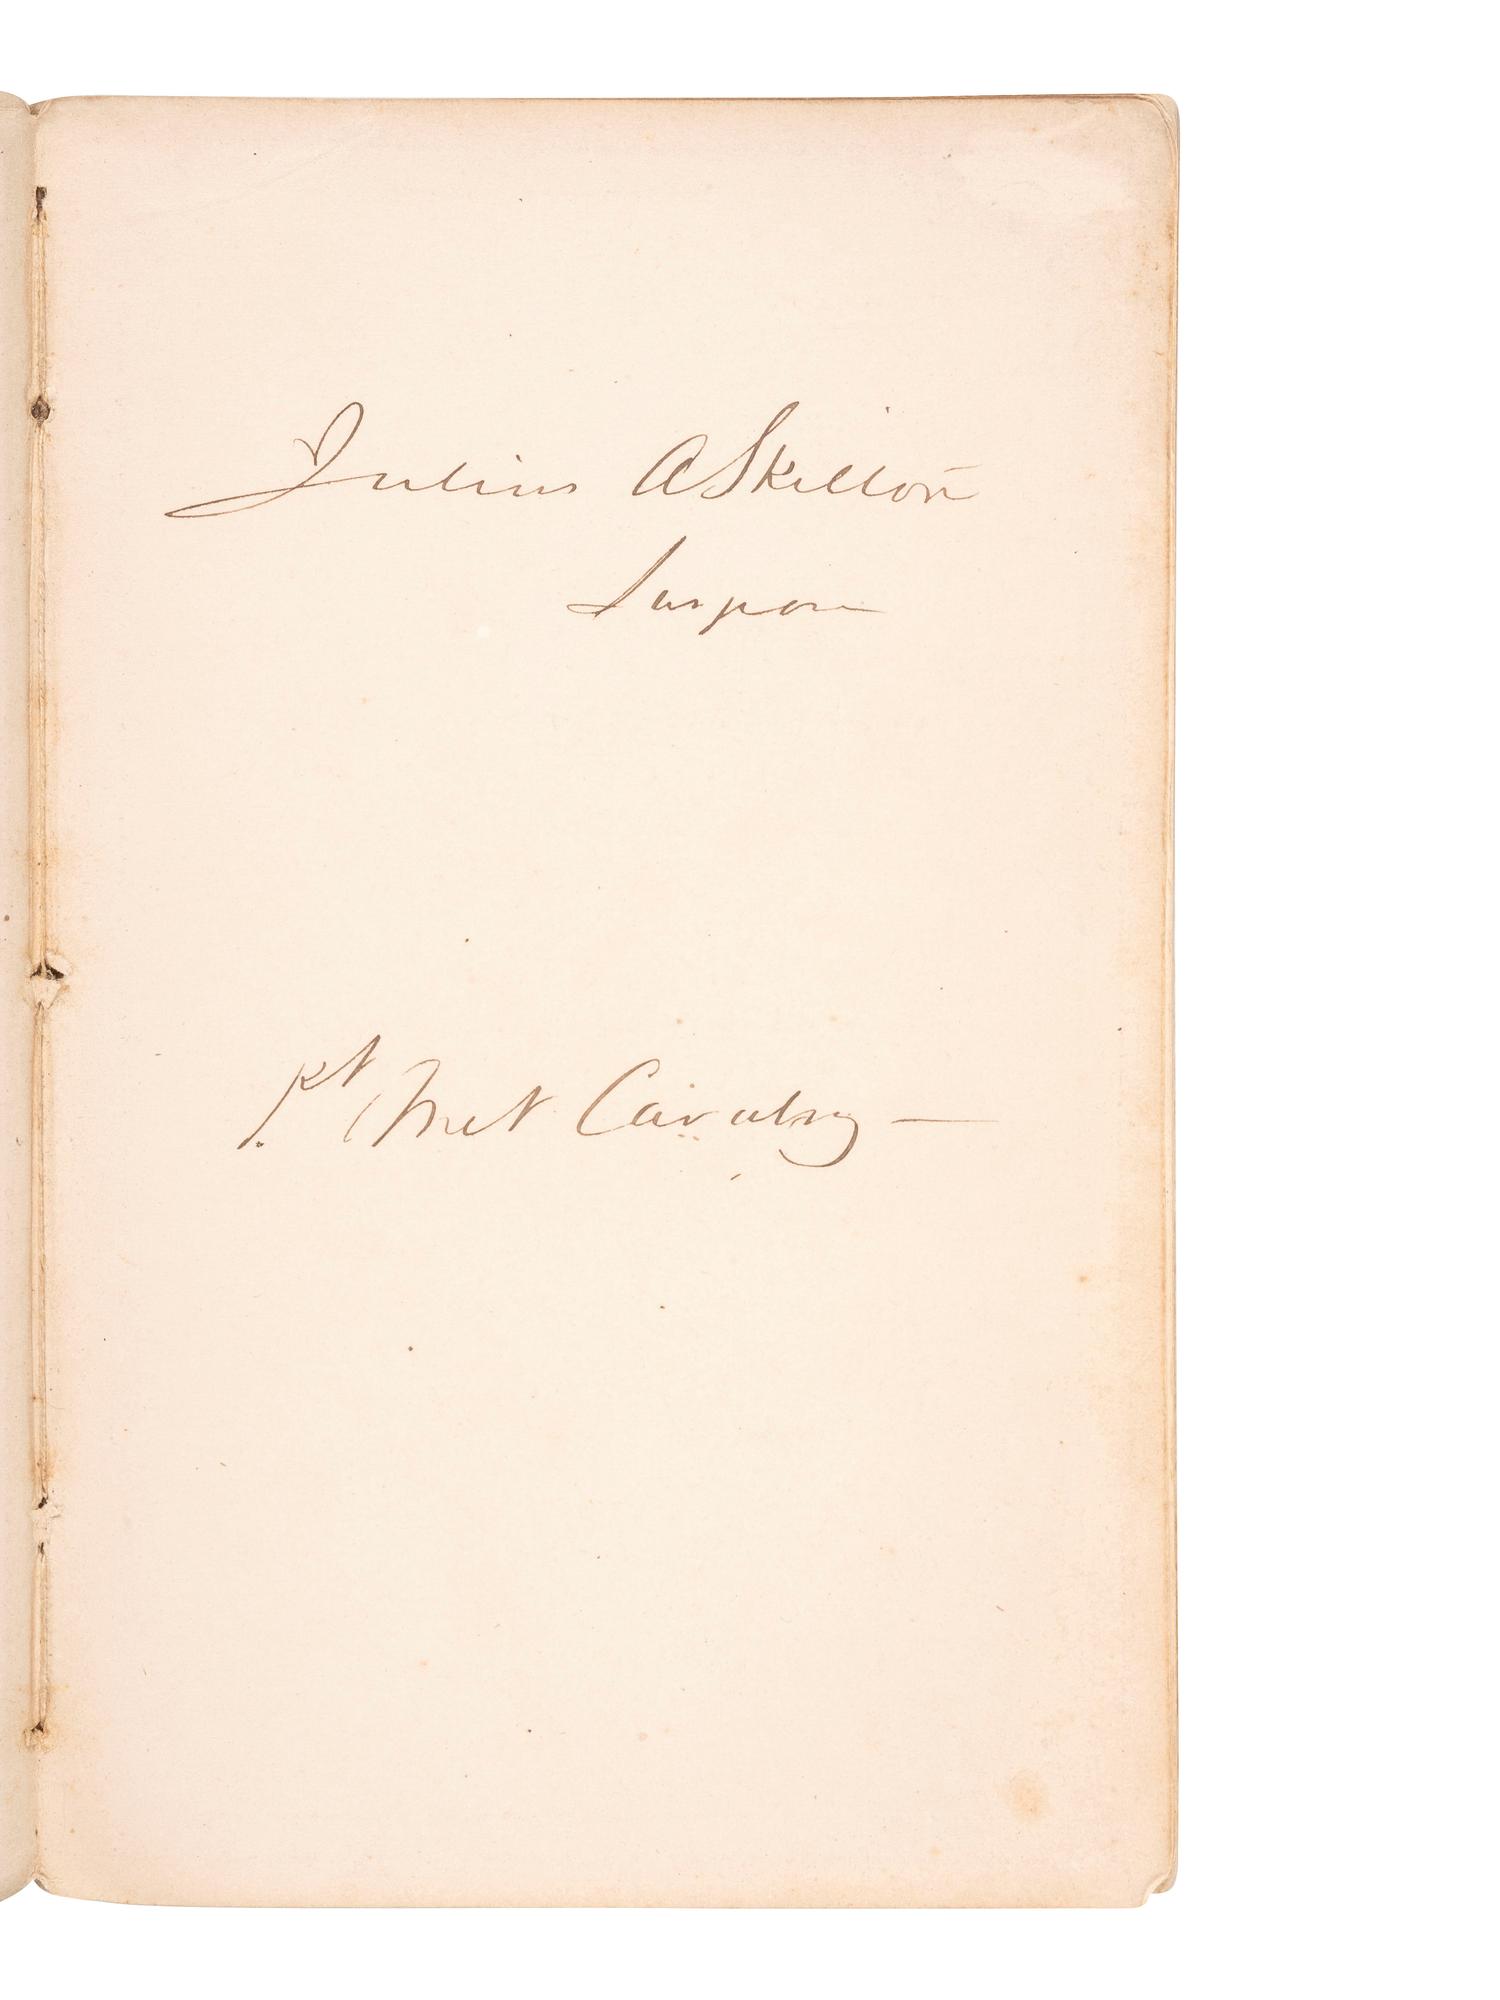 Julius A Skilton
Surgeon
1st Met Cavalry —